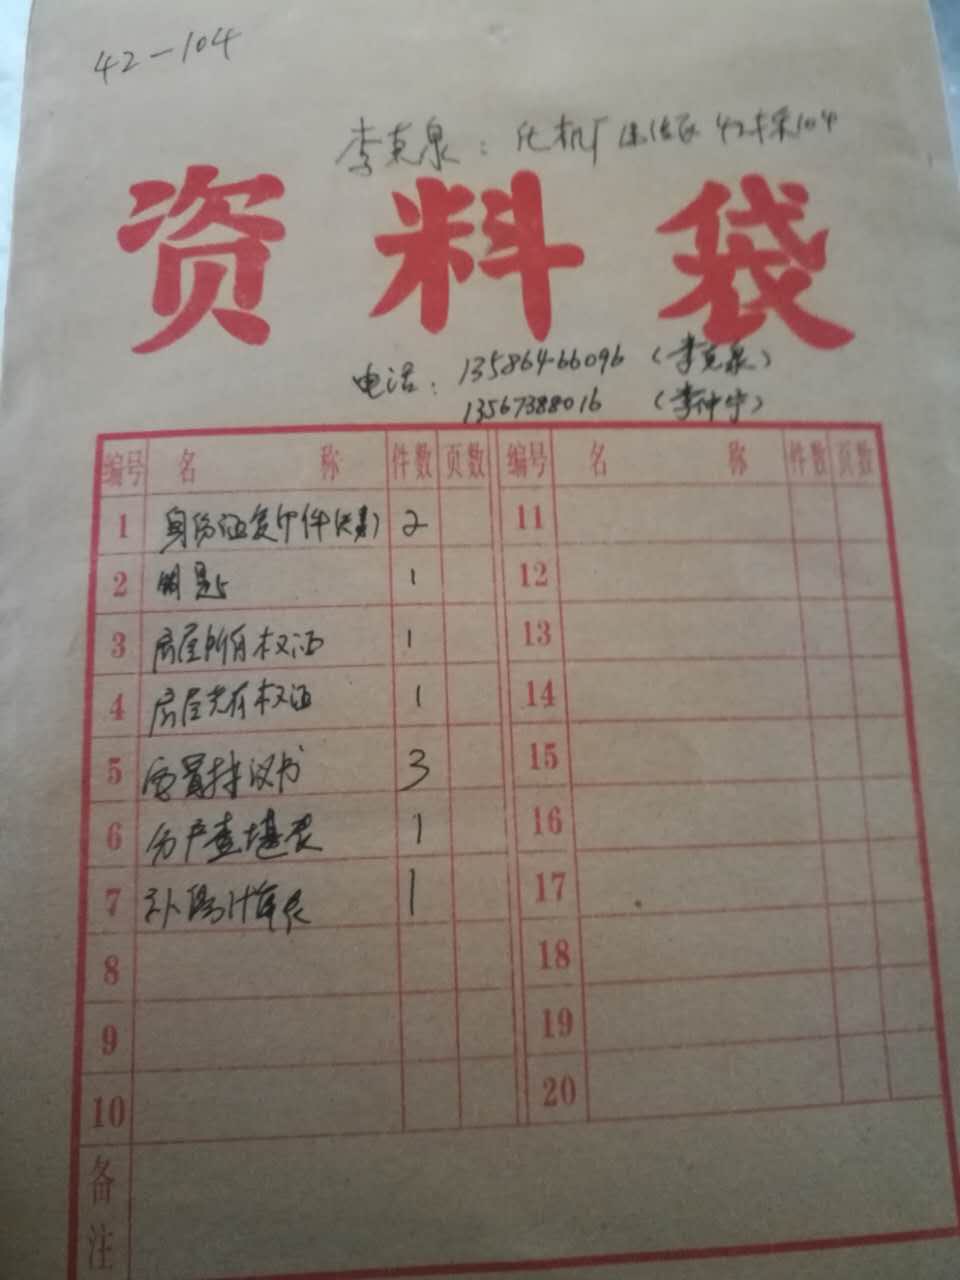 42-104
李克泉：化机厂生活区 42栋104
资料袋
电话：13586466096（李克泉）
13567388016（李仲宁）
编号 名称 件数 页数 编号 名称 件数 页数
1 身份证复印件 2 11
2 钥匙 1 12
3 房屋所有权证 1 13
4 房屋共有权证 1 14
5 安置协议书 3 15
6 分户查堪表 1 16
7 补偿计算表 1 17
8 18
9 19
10 20
备注